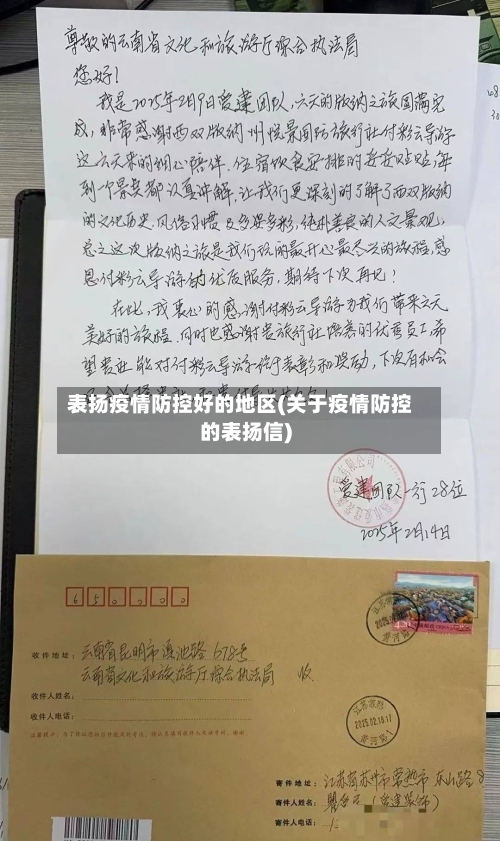 尊敬的云南省文化和旅游厅综合执法局
您好!
我是2025年2月9日爱建团队,六天的版纳之旅圆满完
成,非常感谢西双版纳州悦景国际旅行社付彩云导游
这六天来的细心陪伴.住宿饮食安排的妥妥贴贴,每
到一个景点都认真讲解,让我们更深刻的了解了西双版纳
的文化历史,风俗习惯及多姿多彩,纯朴善良的人文景观,
总之这次版纳之旅是我们玩的最开心最尽兴的旅程,感
恩付彩云导游的优质服务,期待下次再见!
在此,我衷心的感谢付彩云导游为我们带来六天
美好的旅程.同时也感谢贵旅行社培养的优秀员工,希
望贵社能对付彩云导游给于表彰和奖励,下次有机会
表扬疫情防控好的地区(关于疫情防控
的表扬信)
爱建团队一行28位
2025年2月14日
650000
收件地址:云南省昆明市滇池路678号
云南省文化和旅游厅综合执法局 收
收件人姓名:
收件人电话:
2025.02.18.17
寄件地址:江苏省苏州市常熟市东山路8
寄件人姓名:
寄件人电话: